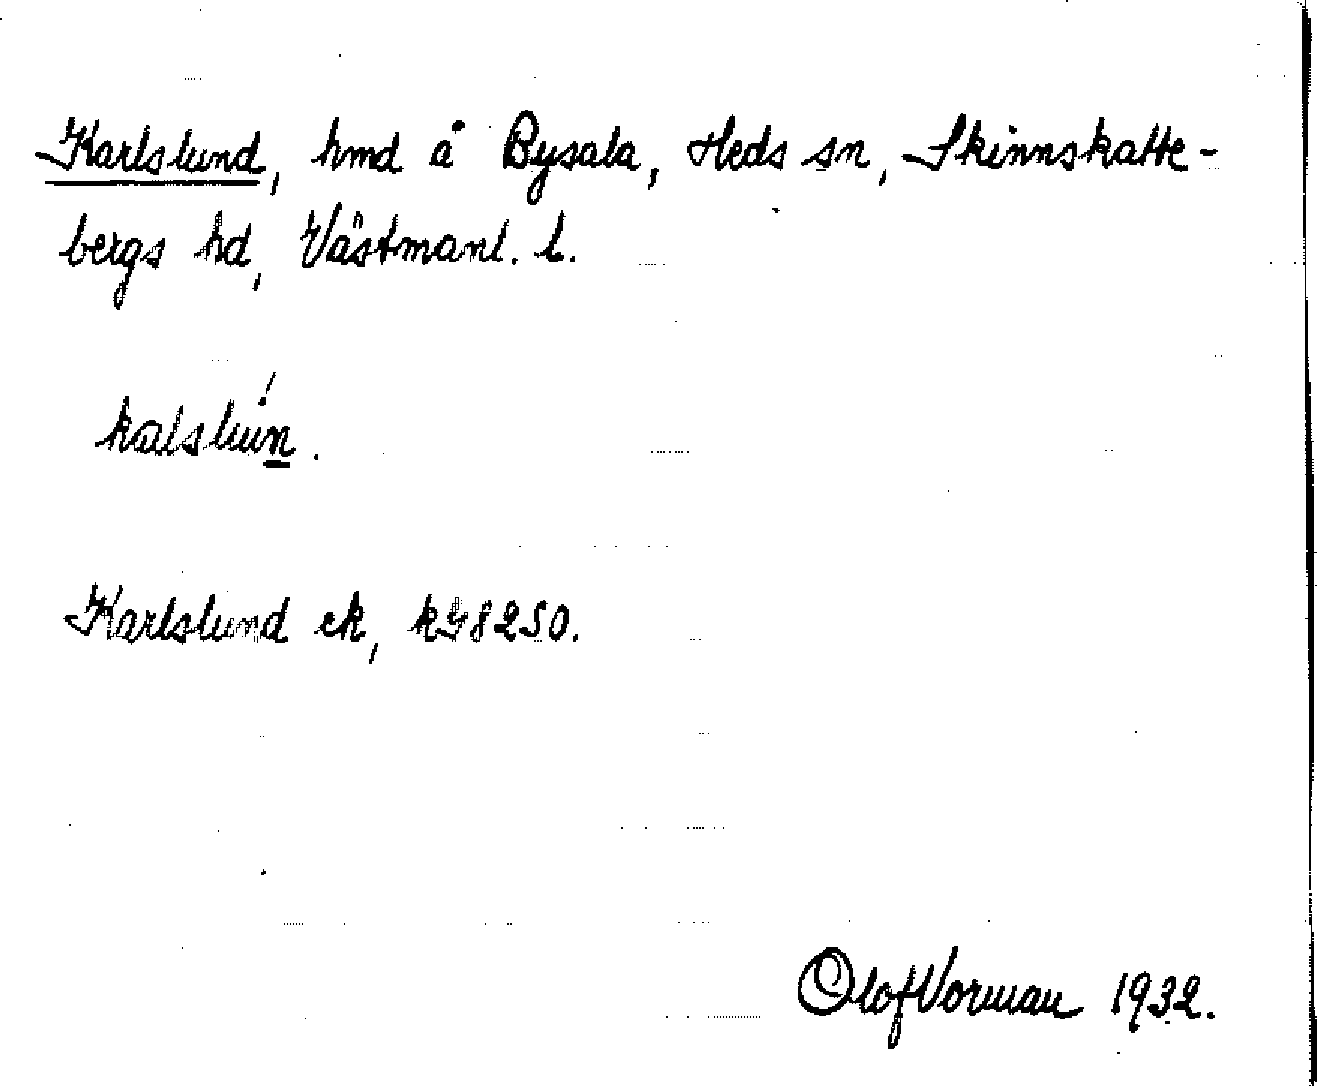 Karlslund, hmd å Bysala, Heds sn, Skinnskatte-
bergs hd, Västmanl. l.
kalslun.
Karlslund ek,
Olof Vorman 1932.